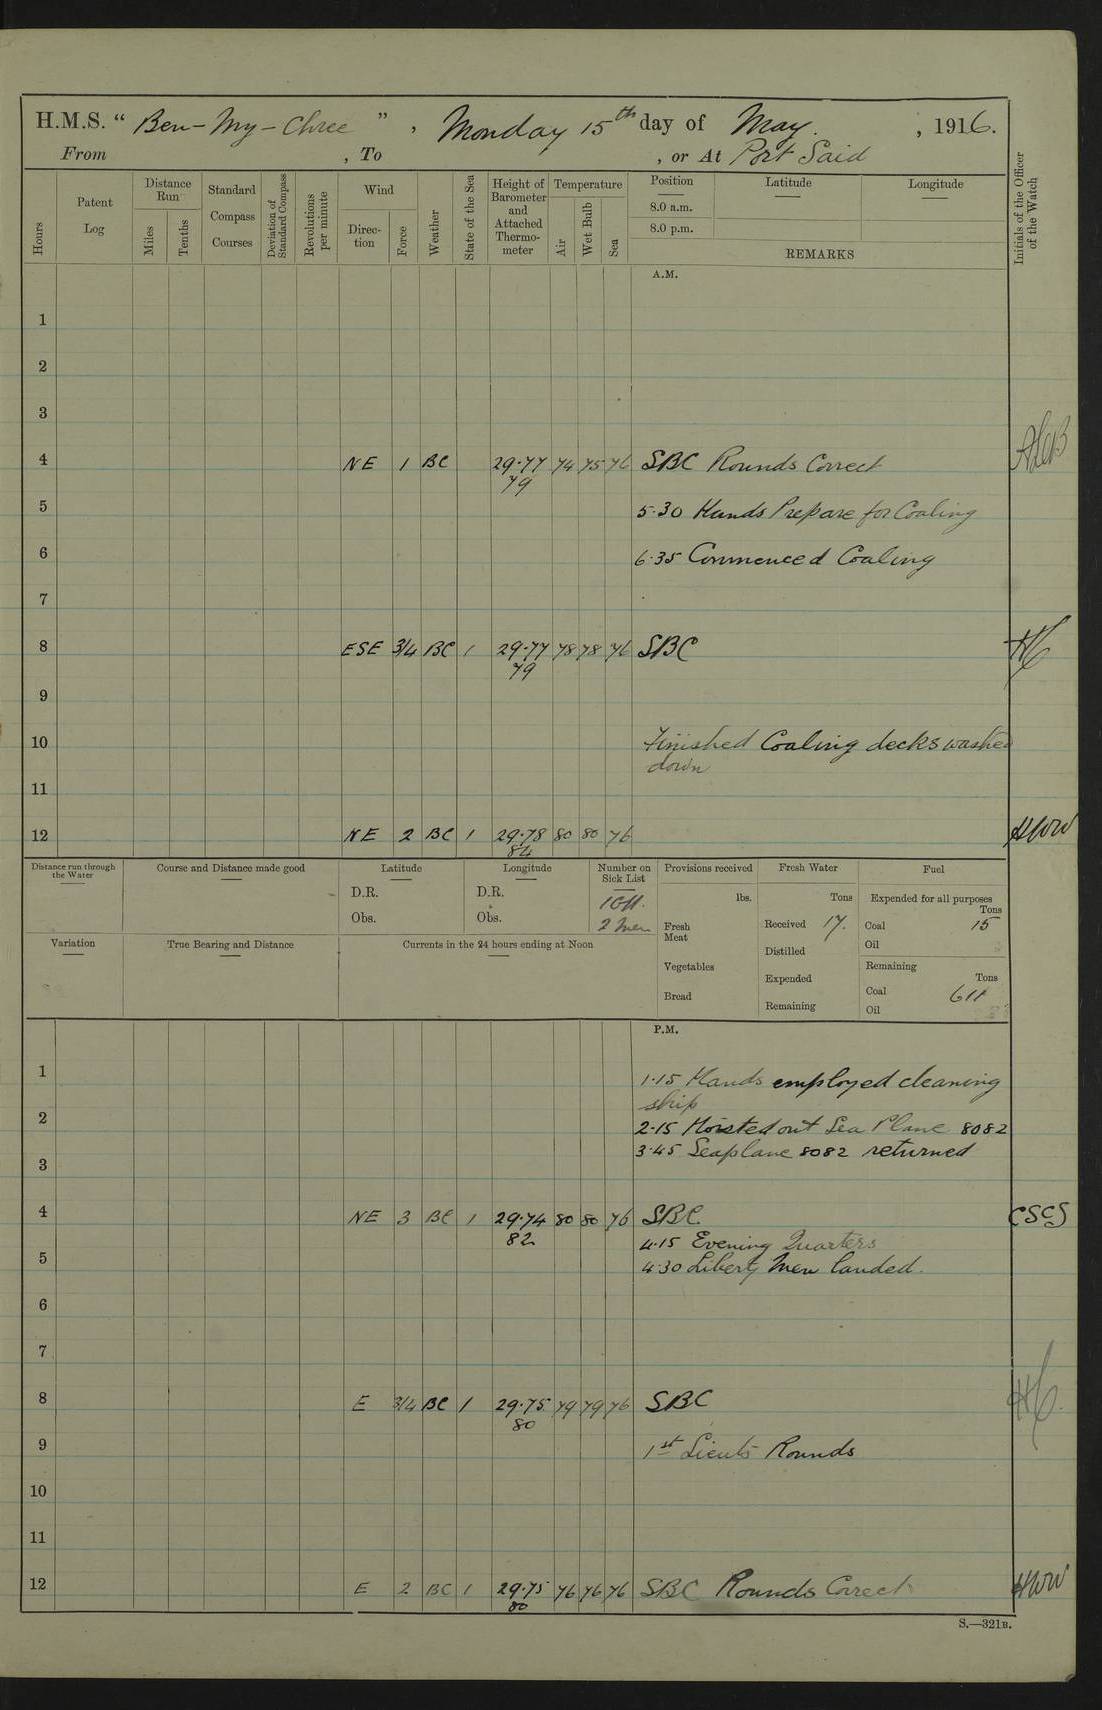 H.M.S. “ Ben-My-Chree ” , Monday 15th day of May. , 1916.
From , To , or At Port Said
Hours
Patent Log
Distance Run
Miles
Tenths
Standard Compass Courses
Deviation of Standard Compass
Revolutions per minute
Wind
Direction
Force
Weather
State of the Sea
Height of Barometer and Attached Thermometer
Temperature
Air
Wet Bulb
Sea
Position
8.0 a.m.
8.0 p.m.
Latitude
Longitude
REMARKS
Initials of the Officer of the Watch
A.M.
1
2
3
4 NE 1 BC 29.77 74 75 76 SBC Rounds Correct
79
5 5.30 Hands Prepare for Coaling
6 6.35 Commenced Coaling
7
8 ESE 3/4 BC 1 29.77 78 78 76 SBC HC
79
9
10 Finished Coaling decks washed
down
11
12 NE 2 BC 1 29.78 80 80 76 HWW
84
Distance run through the Water
Course and Distance made good
Latitude
D.R.
Obs.
Longitude
D.R.
Obs.
Number on Sick List
1 Off.
2 Men
Provisions received
lbs.
Fresh Meat
Vegetables
Bread
Fresh Water
Tons
Received 17.
Distilled
Expended
Remaining
Fuel
Expended for all purposes
Tons
Coal 15
Oil
Remaining
Tons
Coal 611
Oil
Variation
True Bearing and Distance
Currents in the 24 hours ending at Noon
P.M.
1 1.15 Hands employed cleaning
ship
2 2.15 Hoisted out Sea Plane 8082
3 3.45 Seaplane 8082 returned
4 NE 3 BC 1 29.74 80 80 76 SBC. CSCS
82
4.15 Evening Quarters
5 4.30 Liberty Men landed.
6
7
8 E 3/4 BC 1 29.75 79 79 76 SBC HC.
80
9 1st Lieuts Rounds
10
11
12 E 2 BC 1 29.75 76 76 76 SBC Rounds Correct HWW
80
S.—321B.